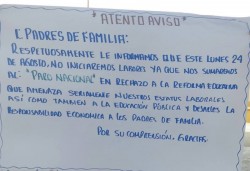 * ATENTO AVISO *
C. PADRES DE FAMILIA:
RESPETUOSAMENTE LE INFORMAMOS QUE ESTE LUNES 24
DE AGOSTO, NO INICIAREMOS LABORES YA QUE NOS SUMAREMOS
AL: "PARO NACIONAL" EN RECHAZO A LA REFORMA EDUCATIVA
QUE AMENAZA SERIAMENTE NUESTROS ESTATUS LABORALES
ASÍ COMO TAMBIEN A LA EDUCACIÓN PÚBLICA Y DEJARLES LA
RESPONSABILIDAD ECONOMICA A LOS PADRES DE FAMILIA.
POR SU COMPRENSIÓN, GRACIAS.